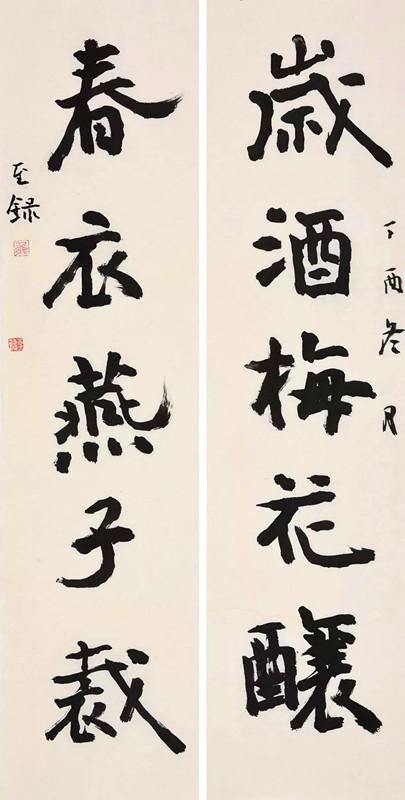 丁酉冬月
歲酒梅花釀
春衣燕子裁
至録